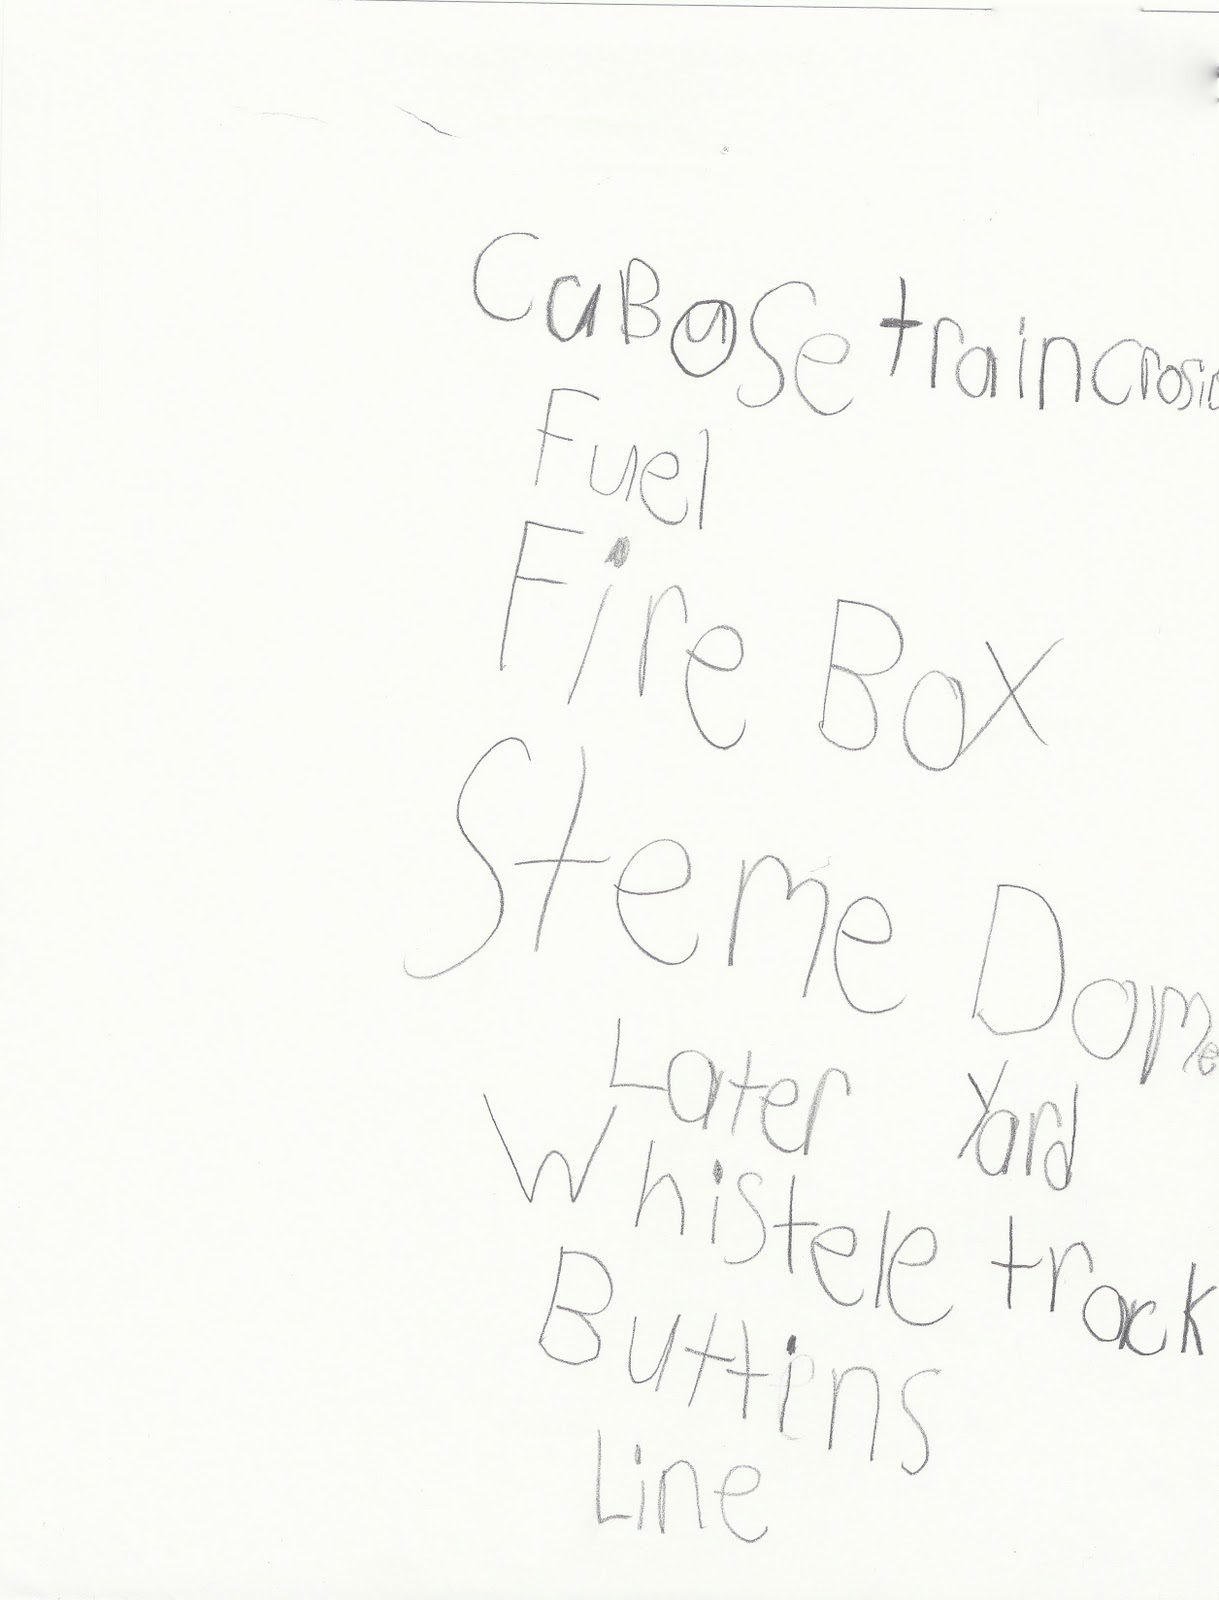 CaBase traincrosi
Fuel
Fire Box
Steme Dome
Later Yard
Whistele track
Buttins
Line